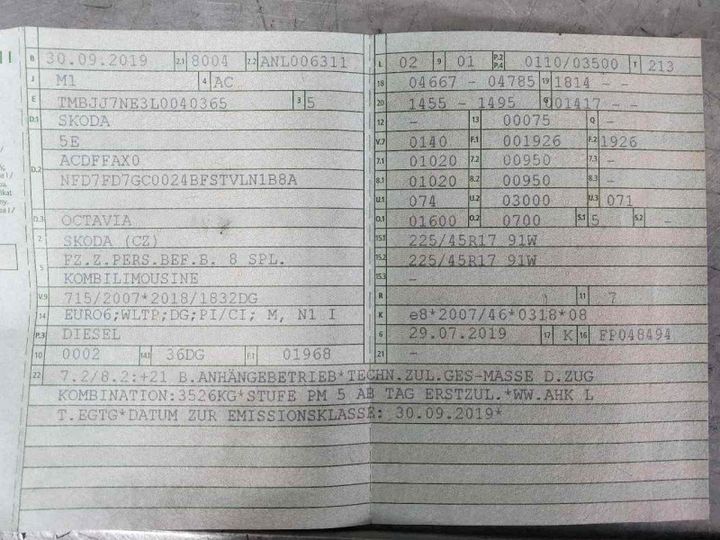 B 30.09.2019 2.1 8004 2.2 ANL006311
J M1 4 AC
E TMBJJ7NE3L0040365 3 5
D.1 SKODA
5E
D.2 ACDFFAX0
NFD7FD7GC0024BFSTVLN1B8A
D.3 OCTAVIA
2 SKODA (CZ)
5 FZ.Z.PERS.BEF.B. 8 SPL.
KOMBILIMOUSINE
V.9 715/2007*2018/1832DG
14 EURO6;WLTP;DG;PI/CI; M, N1 I
P.3 DIESEL
10 0002 14.1 36DG P.1 01968
L 02 9 01 P.2 P.4 0110/03500 T 213
18 04667 - 04785 19 1814 - -
20 1455 - 1495 G 01417 - -
12 - 13 00075 Q -
V.7 0140 F.1 001926 F.2 1926
7.1 01020 7.2 00950 7.3 -
8.1 01020 8.2 00950 8.3 -
U.1 074 U.2 03000 U.3 071
O.1 01600 O.2 0700 S.1 5 S.2 -
15.1 225/45R17 91W
15.2 225/45R17 91W
15.3 -
R 11 7
K e8*2007/46*0318*08
6 29.07.2019 17 K 16 FP048494
21 -
22 7.2/8.2:+21 B.ANHÄNGEBETRIEB*TECHN.ZUL.GES-MASSE D.ZUG
KOMBINATION:3526KG*STUFE PM 5 AB TAG ERSTZUL.*WW.AHK L
T.EGTG*DATUM ZUR EMISSIONSKLASSE: 30.09.2019*